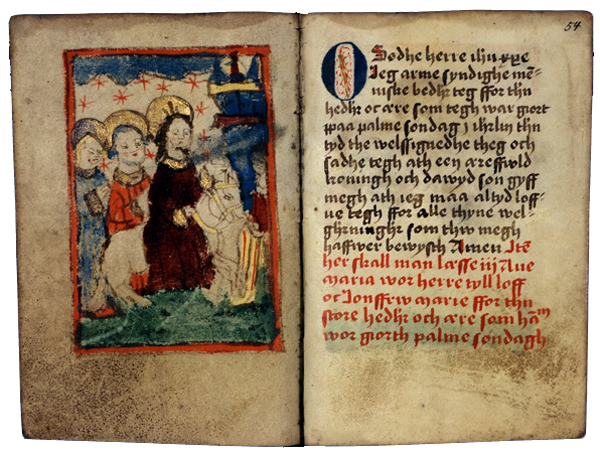 54
O Sodhe herre ihu xpe
Jeg arme syndighe mē-
niske bedhr teg ffor thn
hedhr oc ære som tegh war giort
paa palme sondag j ihrlm thn
tyd the welssignedhe theg och
sadhe tegh ath een æreffwld
kroningh och dawyd son gyff
megh ath ieg maa altyd loff-
ue tegh ffor alle thyne wel-
ghrninghr som thw megh
haffwer bewysth Amen Itē
her skall man læsse iij Aue
maria wor herre tyll loff
oc Jonffrw marie ffor thn
store hedhr och ære som hām
wor giorth palme sondagh